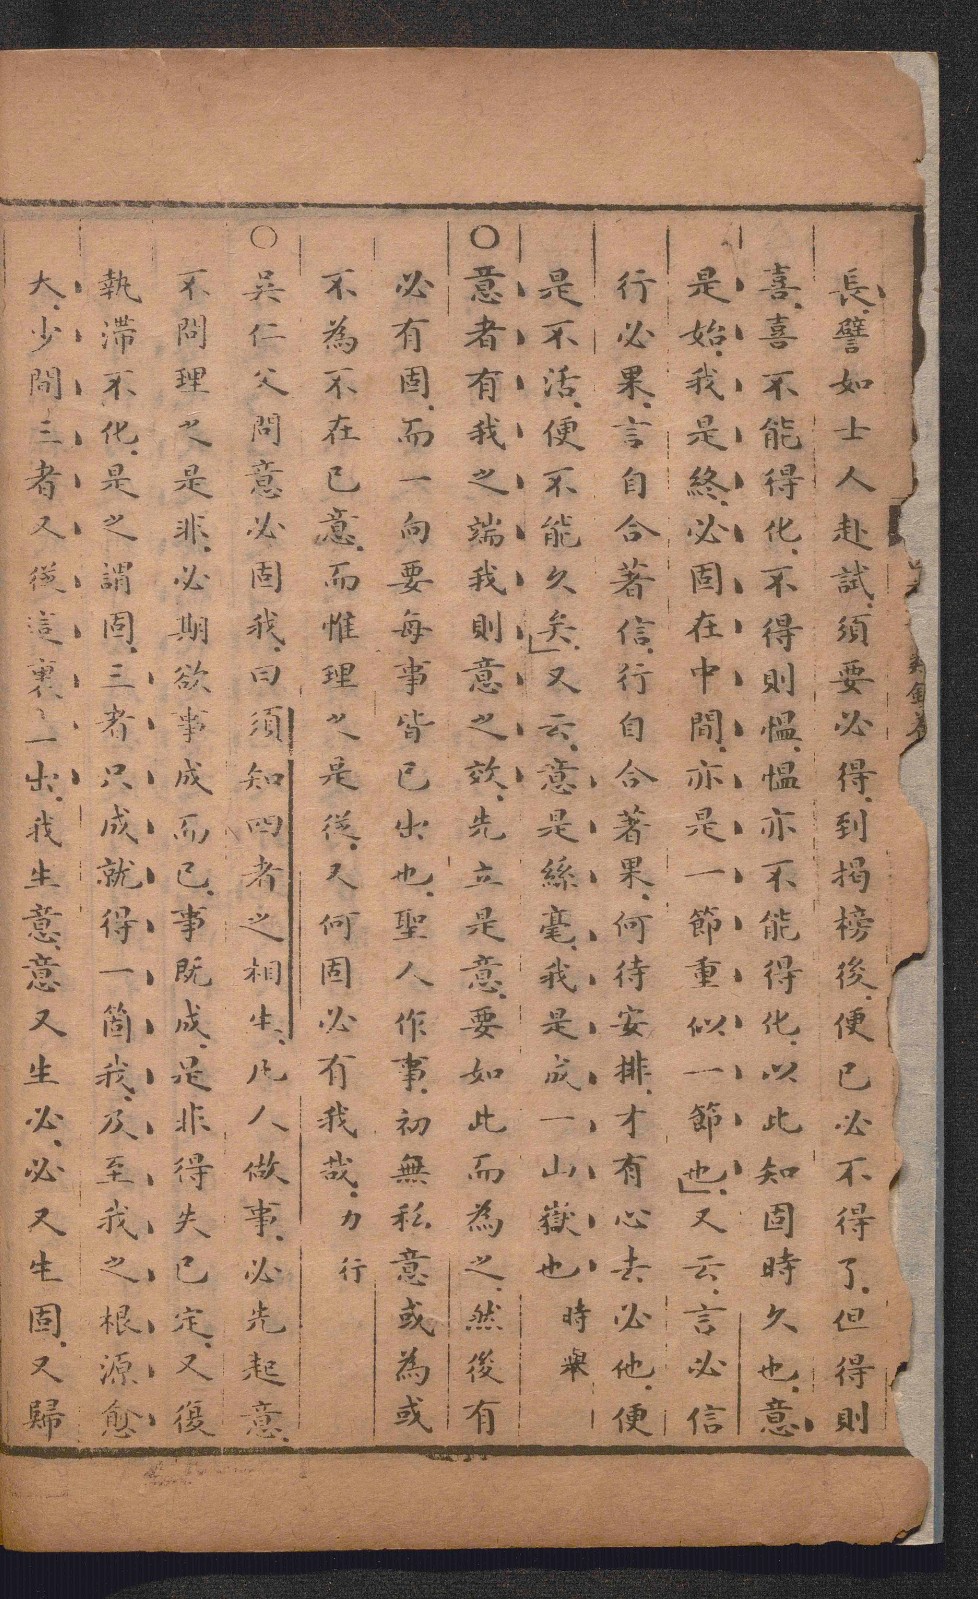 長譬如士人赴試須要必得到揭榜後便已必不得了但得則
喜喜不能得化不得則慍慍亦不能得化以此知固時久也意
是始我是終必固在中間亦是一節重似一節也又云言必信
行必果言自合著信行自合著果何待安排才有心去必他便
是不活便不能久矣又云意是絲毫我是成一山嶽也時舉
○意者有我之端我則意之效先立是意要如此而為之然後有
必有固而一向要每事皆已出也聖人作事初無私意或為或
不為不在已意而惟理之是從又何固必有我哉力行
○吳仁父問意必固我曰須知四者之相生凡人做事必先起意
不問理之是非必期欲事成而已事既成是非得失已定又復
執滯不化是之謂固三者只成就得一箇我及至我之根源愈
大少間三者又從這裏一出我生意意又生必必又生固又歸